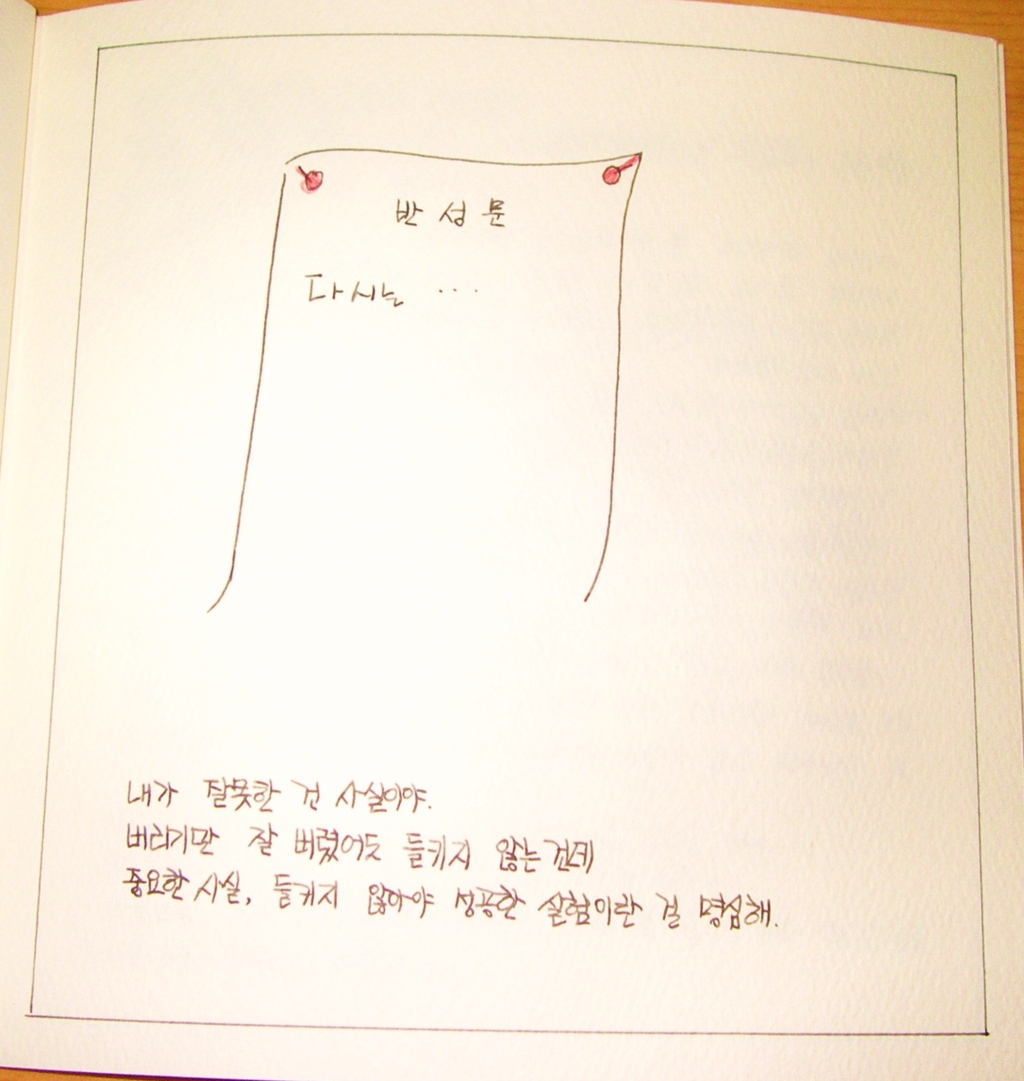 반성문
다시는 ...
내가 잘못한 건 사실이야.
버리기만 잘 버렸어도 들키지 않는건데
중요한 사실, 들키지 않아야 성공한 실험이란 걸 명심해.